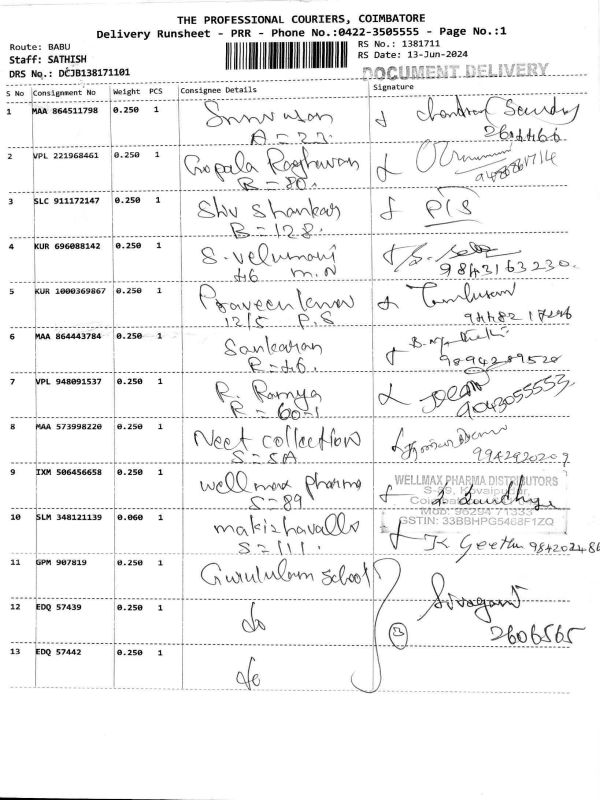 THE PROFESSIONAL COURIERS, COIMBATORE
Delivery Runsheet - PRR - Phone No.:0422-3505555 - Page No.:1
Route: BABU
RS No.: 1381711
Staff: SATHISH
RS Date: 13-Jun-2024
DRS No.: DCJB138171101
DOCUMENT DELIVERY
S No Consignment No Weight PCS Consignee Details Signature
1 MAA 864511798 0.250 1
A = 27.
2 VPL 221968461 0.250 1 Gopala Raghavan
B = 80.
3 SLC 911172147 0.250 1 Shiv Shankar P/S
B = 128.
4 KUR 696088142 0.250 1 S. velumani
46 m.N 9843163230.
5 KUR 1000369867 0.250 1
12/5 P.S
6 MAA 864443784 0.250 1 Sankaran
R = 46. 9894289520
7 VPL 948091537 0.250 1 R. Ramya
R = 60-1 9043055553
8 MAA 573998220 0.250 1 Neet collection
S = 5A 9942920207
9 IXM 506456658 0.250 1 wellmax pharma
S = 89
WELLMAX PHARMA DISTRIBUTORS
S-89,
Mob: 96294 71333
GSTIN: 33BBHPG5468F1ZQ
10 SLM 348121139 0.060 1
S = 111. K Geetha
11 GPM 907819 0.250 1 Gurukulam School
12 EDQ 57439 0.250 1 do
3 2606565
13 EDQ 57442 0.250 1 do